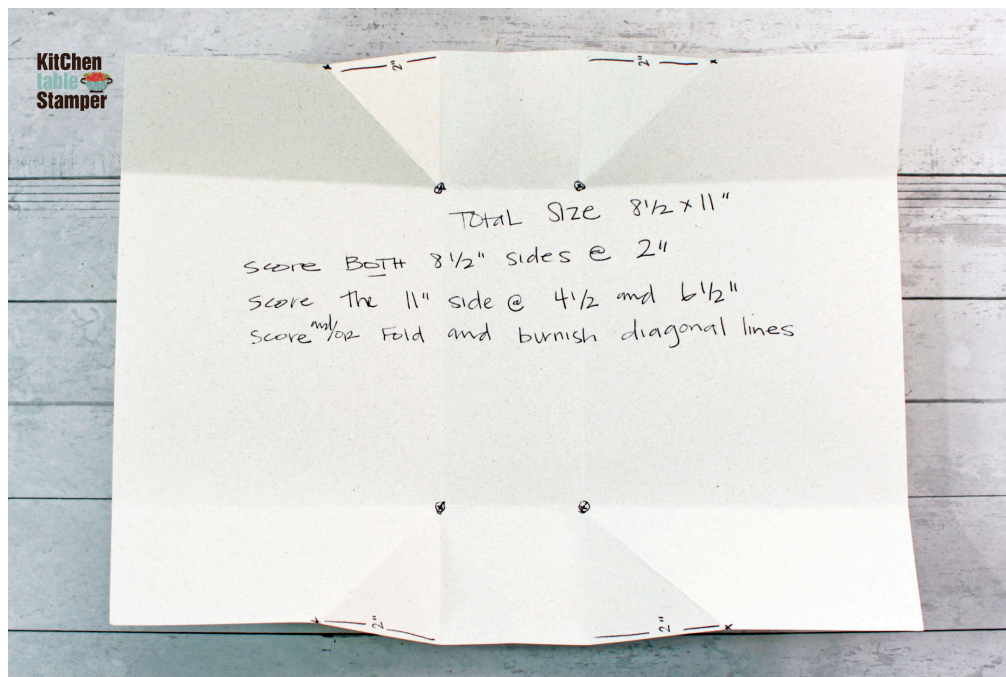 KitChen
table
Stamper
2"
2"
Total Size 8 1/2 x 11"
Score BOTH 8 1/2" sides @ 2"
Score the 11" side @ 4 1/2 and 6 1/2"
Score and/or Fold and burnish diagonal lines
2"
2"